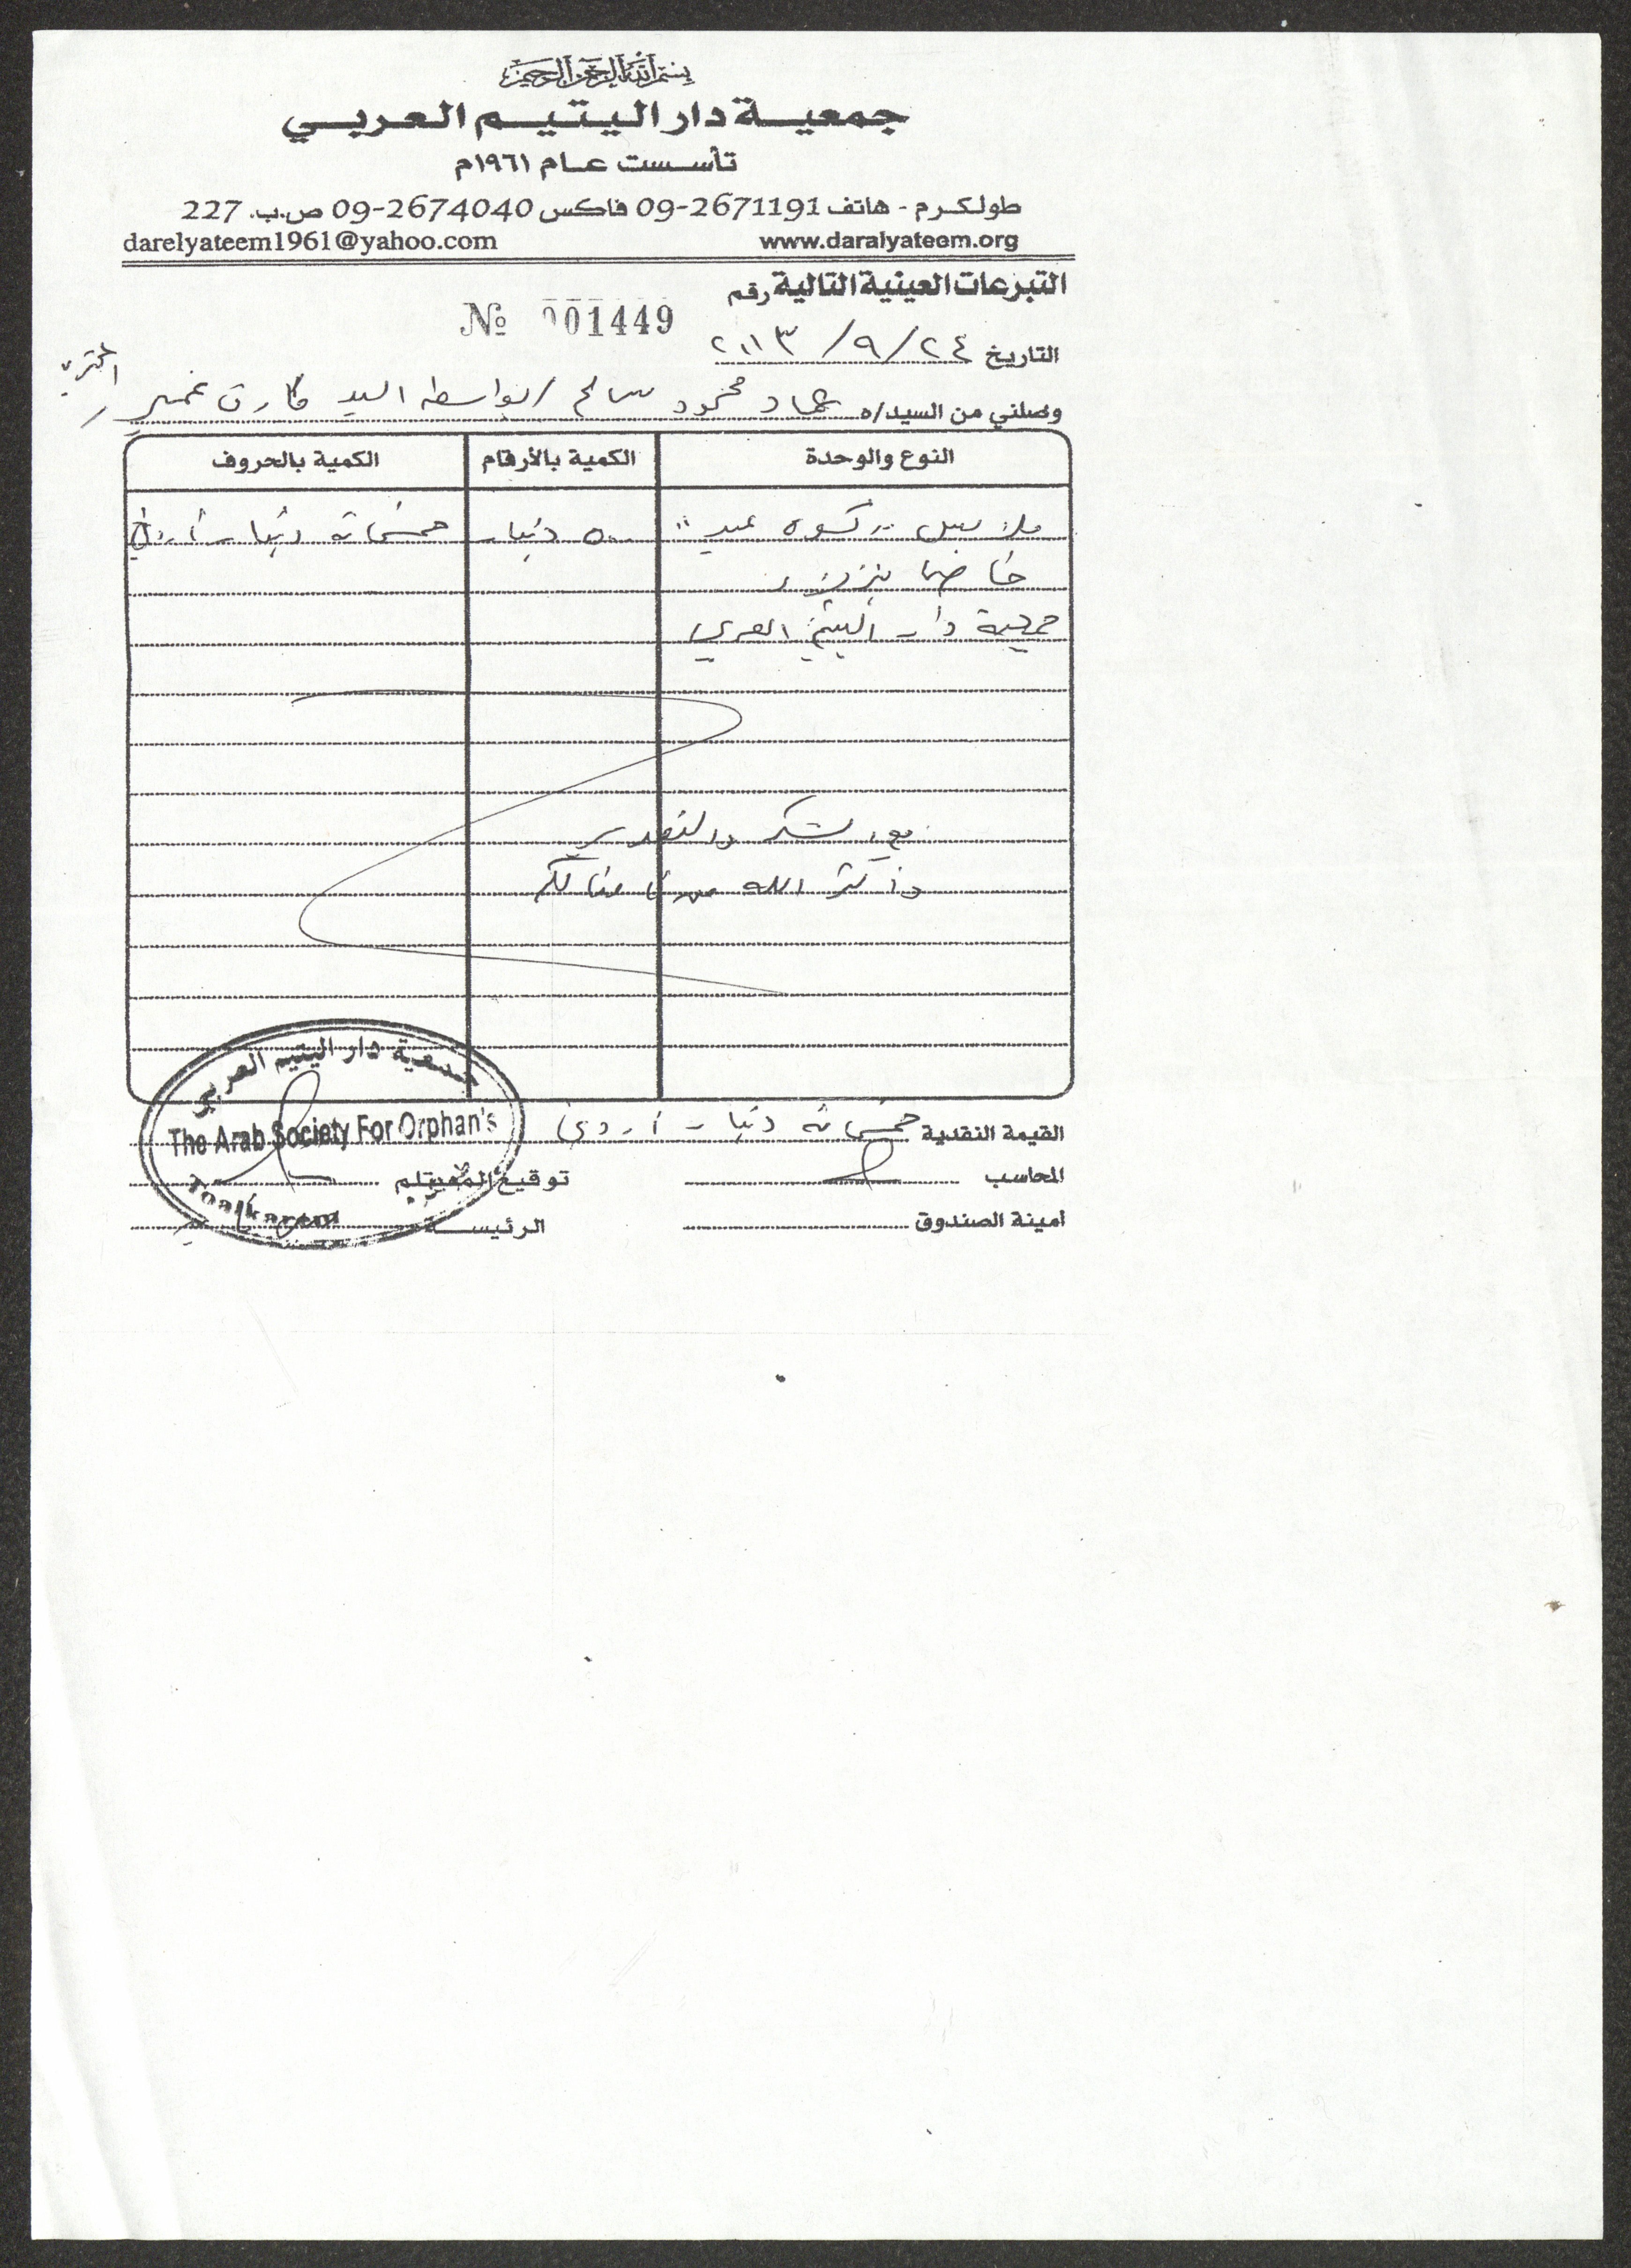 بسم الله الرحمن الرحيم
جمعية دار اليتيم العربي
تأسست عام ١٩٦١م
طولكرم - هاتف 09-2671191 فاكس 09-2674040 ص.ب. 227
darelyateem1961@yahoo.com www.daralyateem.org
التبرعات العينية التالية رقم
№ 001449
التاريخ ٢٤/٩/٢٠١٣
وصلني من السيد/ه عماد محمود سالح / بواسطة السيد فاروق
النوع والوحدة الكمية بالأرقام الكمية بالحروف
ملابس "كسوة عيد" ٥٠٠ دينار خمسمائة دينار أردني
خاصة
جمعية دار اليتيم العربي
مع الشكر والتقدير
وأكثر الله من أمثالكم
القيمة النقدية خمسمائة دينار أردني
المحاسب توقيع المستلم
أمينة الصندوق الرئيسة
جمعية دار اليتيم العربي
The Arab Society For Orphan's
Toalkarem